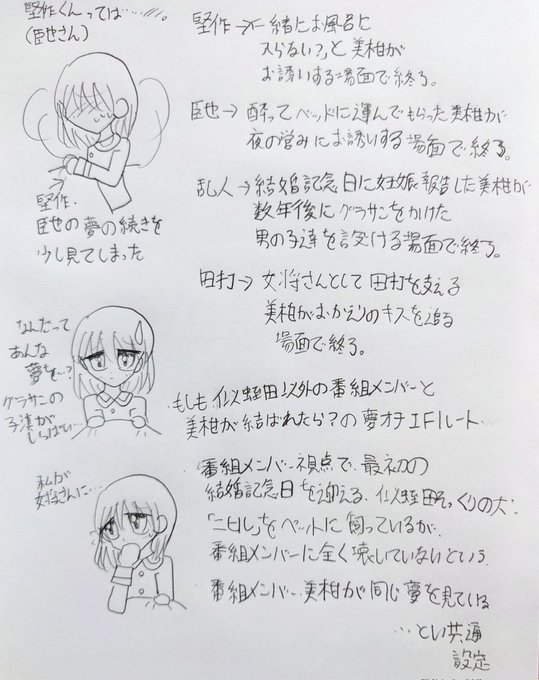 堅作くんってば……///。
(臣也さん)
堅作→「一緒にお風呂に
入らない?」と美柑が
お誘いする場面で終る。
臣也→酔ってベッドに運んでもらった美柑が
夜の営みにお誘いする場面で終る。
堅作、
臣也の夢の続きを
少し見てしまった
乱人→結婚記念日に妊娠報告した美柑が
数年後にグラサンをかけた
男の子達を設ける場面で終る。
田打→女将さんとして田打を支える
美柑がおかえりのキスを迫る
場面で終る。
なんだって
あんな
夢を…?
グラサンの
子達が
いっぱい…
もしも似蛭田以外の番組メンバーと
美柑が結ばれたら?の夢オチIFルート…
私が
女将さんに…
番組メンバー視点で、最初の
結婚記念日を迎える。似蛭田そっくりの犬:
「ニヒル」をペットに飼っているが、
番組メンバーに全く懐していないという
番組メンバー、美柑が同じ夢を見ている
…とい共通
設定